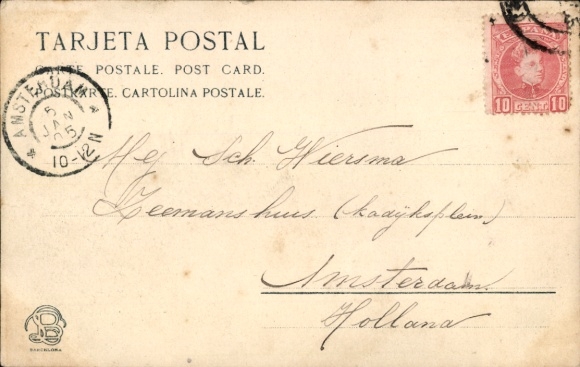 TARJETA POSTAL
CARTE POSTALE. POST CARD.
POSTKARTE. CARTOLINA POSTALE.
AMSTERDAM
5
JAN
05
10-12N
10 CENT. 10
Mej Sch. Wiersma
Zeemanshuis (kadijksplein)
Amsterdam.
Holland
BARCELONA